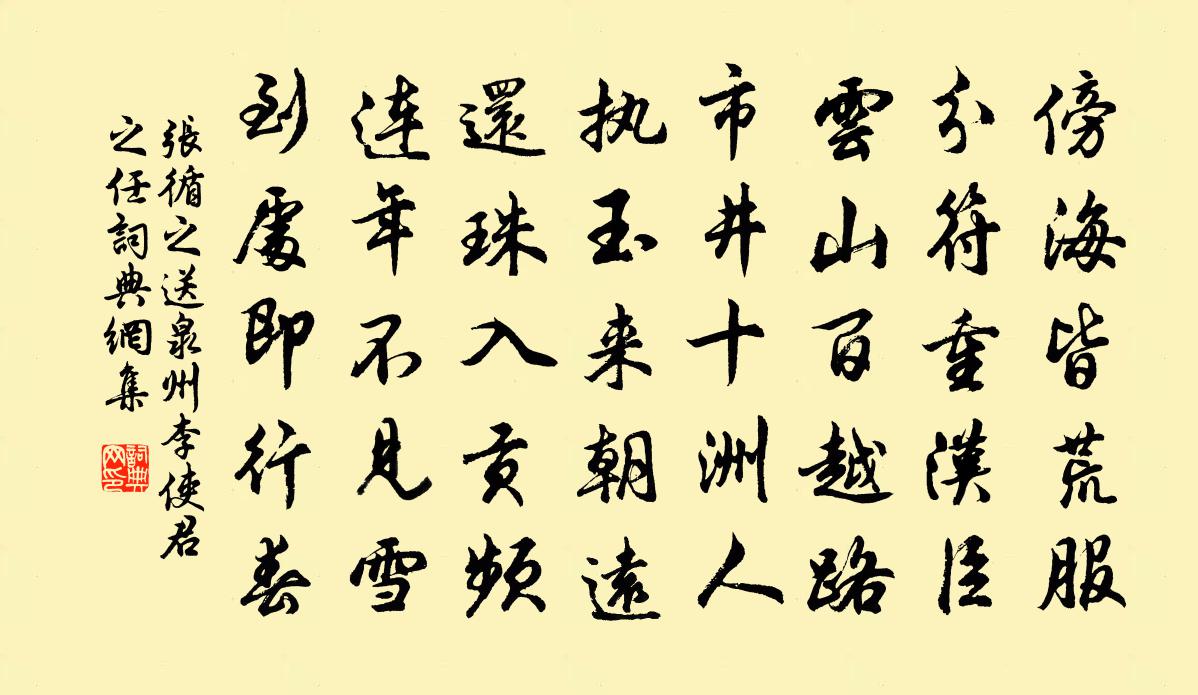 傍海皆荒服
分符重漢臣
雲山百越路
市井十洲人
执玉来朝遠
還珠入貢頻
連年不見雪
到處即行春
張循之送泉州李使君
之任詞典網集
詞典
网印